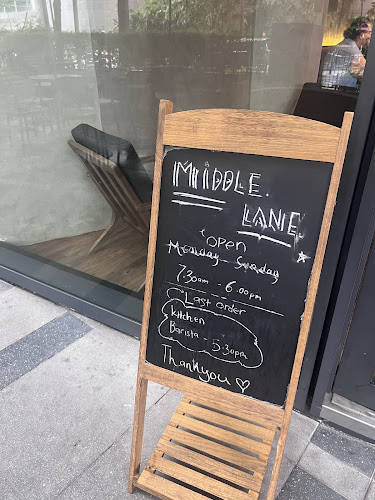 MIDDLE.
LANE.
Open
Monday - Sunday
7.30am - 6.00pm
Last order
Kitchen
Barista - 5.30pm
Thankyou ♡